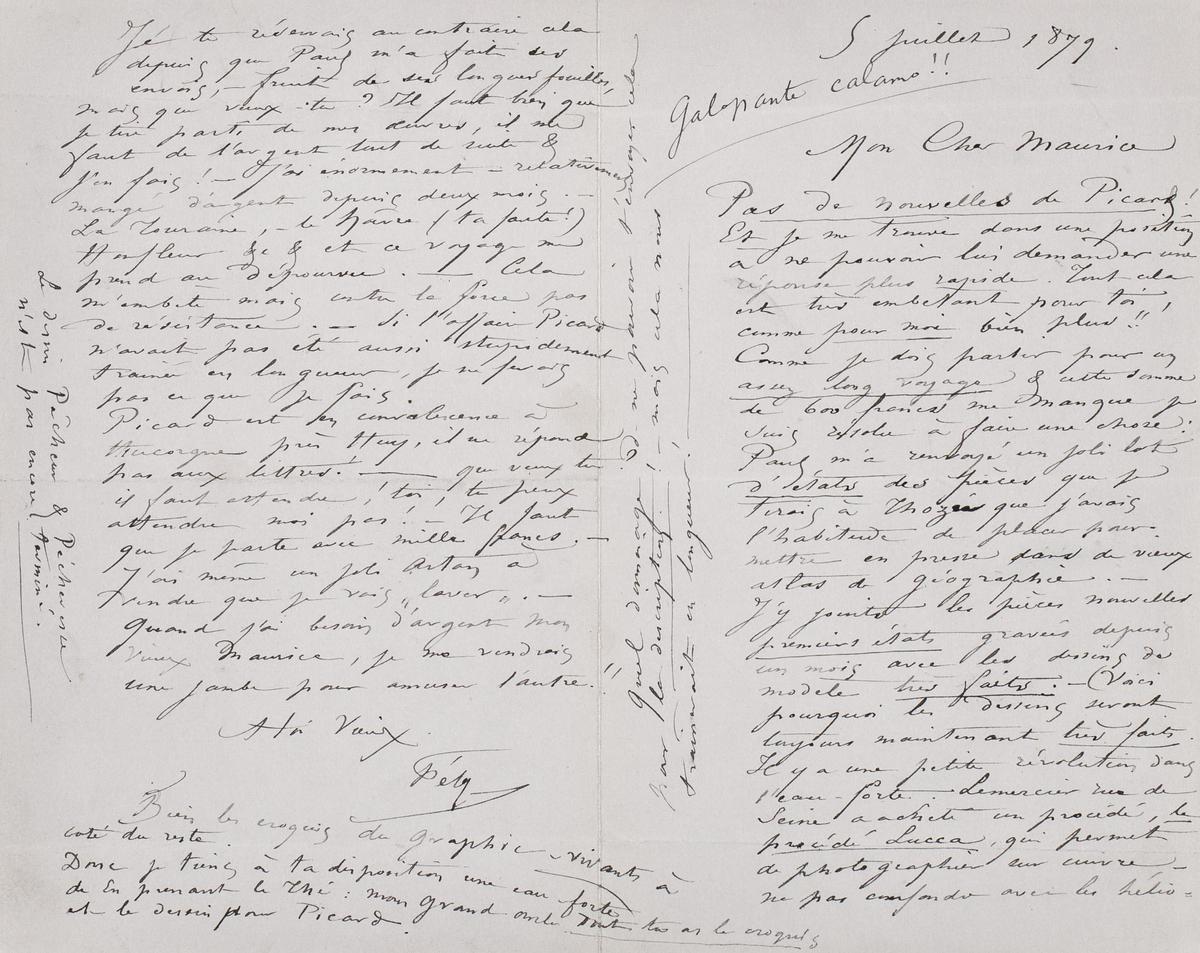 5 Juillet 1879.
Galopante calamo!!
Mon Cher Maurice
Pas de nouvelles de Picard!
Et je me trouve dans une position
à ne pouvoir lui demander une
réponse plus rapide. Tout cela
est très embetant pour toi,
comme pour moi bien plus!!
Comme je dois partir pour un
assez long voyage & cette somme
de 600 francs me manque je
suis résolu à faire une chose:
Paul m'a renvoyé un joli lot
d'états des pièces que je
tirais à Thozée que j'avais
l'habitude de placer pour
mettre en presse dans de vieux
atlas de géographie. —
J'y joints les pièces nouvelles
premiers états gravées depuis
un mois avec les dessins de
modele très faits. — (Voici
pourquoi les dessins seront
toujours maintenant très faits.
Il y a une petite révolution dans
l'eau-forte. Lemercier rue de
Seine a acheté un procédé, le
procédé Lucca, qui permet
de photographier sur cuivre —
ne pas confondre avec les hélio=
Je te réservais au contraire cela
depuis que Paul m'a fait ses
envois, — fruit de ses longues fouilles,
mais que veux-tu? Il faut bien que
je tire parti de mes œuvres, il me
faut de l'argent tout de suite &
j'en fais! — J'ai énormement — relativement
mangé d'argent depuis deux mois. —
La Touraine, — le Havre (ta faute!)
Honfleur &c & et ce voyage me
prend au dépourvu. — Cela
m'embete mais contre la force pas
de résistance. — Si l'affaire Picard
n'avait pas été aussi stupidement
trainée en longueur, je ne ferais
pas ce que je fais
Picard est en convalescence à
près Huy, il ne répond
pas aux lettres! — que veux tu
il faut attendre, toi, tu peux
attendre moi pas! — Il faut
que je parte avec mille francs. —
J'ai même un joli Artan à
vendre que je vais „laver„. —
Quand j'ai besoin d'argent mon
vieux Maurice, je me vendrais
une jambe pour amuser l'autre.
A toi Vieux
Fély
Bien les croquis du Graphic — vivants à
coté du reste.
Donc je tiens à ta disposition une eau forte
de En prenant le Thé: mon grand oncle dont tu as le croquis
et le dessin pour Picard.
Le dessin Pêcheur & Pécheresse
n'est pas encore terminé.
Quel dommage! de ne pouvoir t'envoyer cela
pour la description! — mais cela nous
trainerait en longueur!